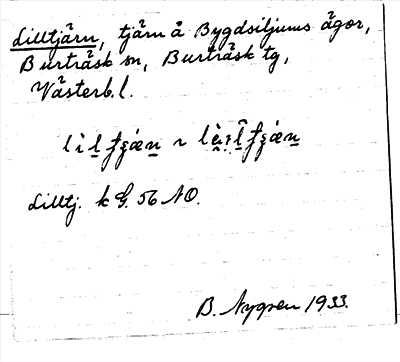 Lilltjärn, tjärn å Bygdsiljums ägor,
Burträsk sn, Burträsk tg,
Västerb. l.
Lilltj. k G. 56 NO.
B. Nygren 1933.